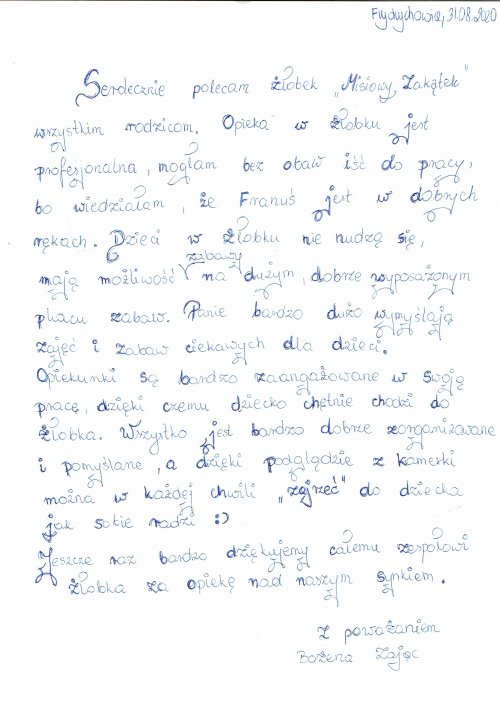 Frydrychowice, 31.08.2020
Serdecznie polecam żłobek „Misiowy Zakątek"
wszystkim rodzicom. Opieka w żłobku jest
profesjonalna, mogłam bez obaw iść do pracy,
bo wiedziałam, że Franuś jest w dobrych
rękach. Dzieci w żłobku nie nudzą się,
mają możliwość zabawy na dużym, dobrze wyposażonym
placu zabaw. Panie bardzo dużo wymyślają
zajęć i zabaw ciekawych dla dzieci.
Opiekunki są bardzo zaangażowane w swoją
pracę, dzięki czemu dziecko chętnie chodzi do
żłobka. Wszystko jest bardzo dobrze zorganizowane
i pomyślane, a dzięki podglądzie z kamerki
można w każdej chwili „zajrzeć" do dziecka
jak sobie radzi :)
Jeszcze raz bardzo dziękujemy całemu zespołowi
żłobka za opiekę nad naszym synkiem.
Z poważaniem
Bożena Zając